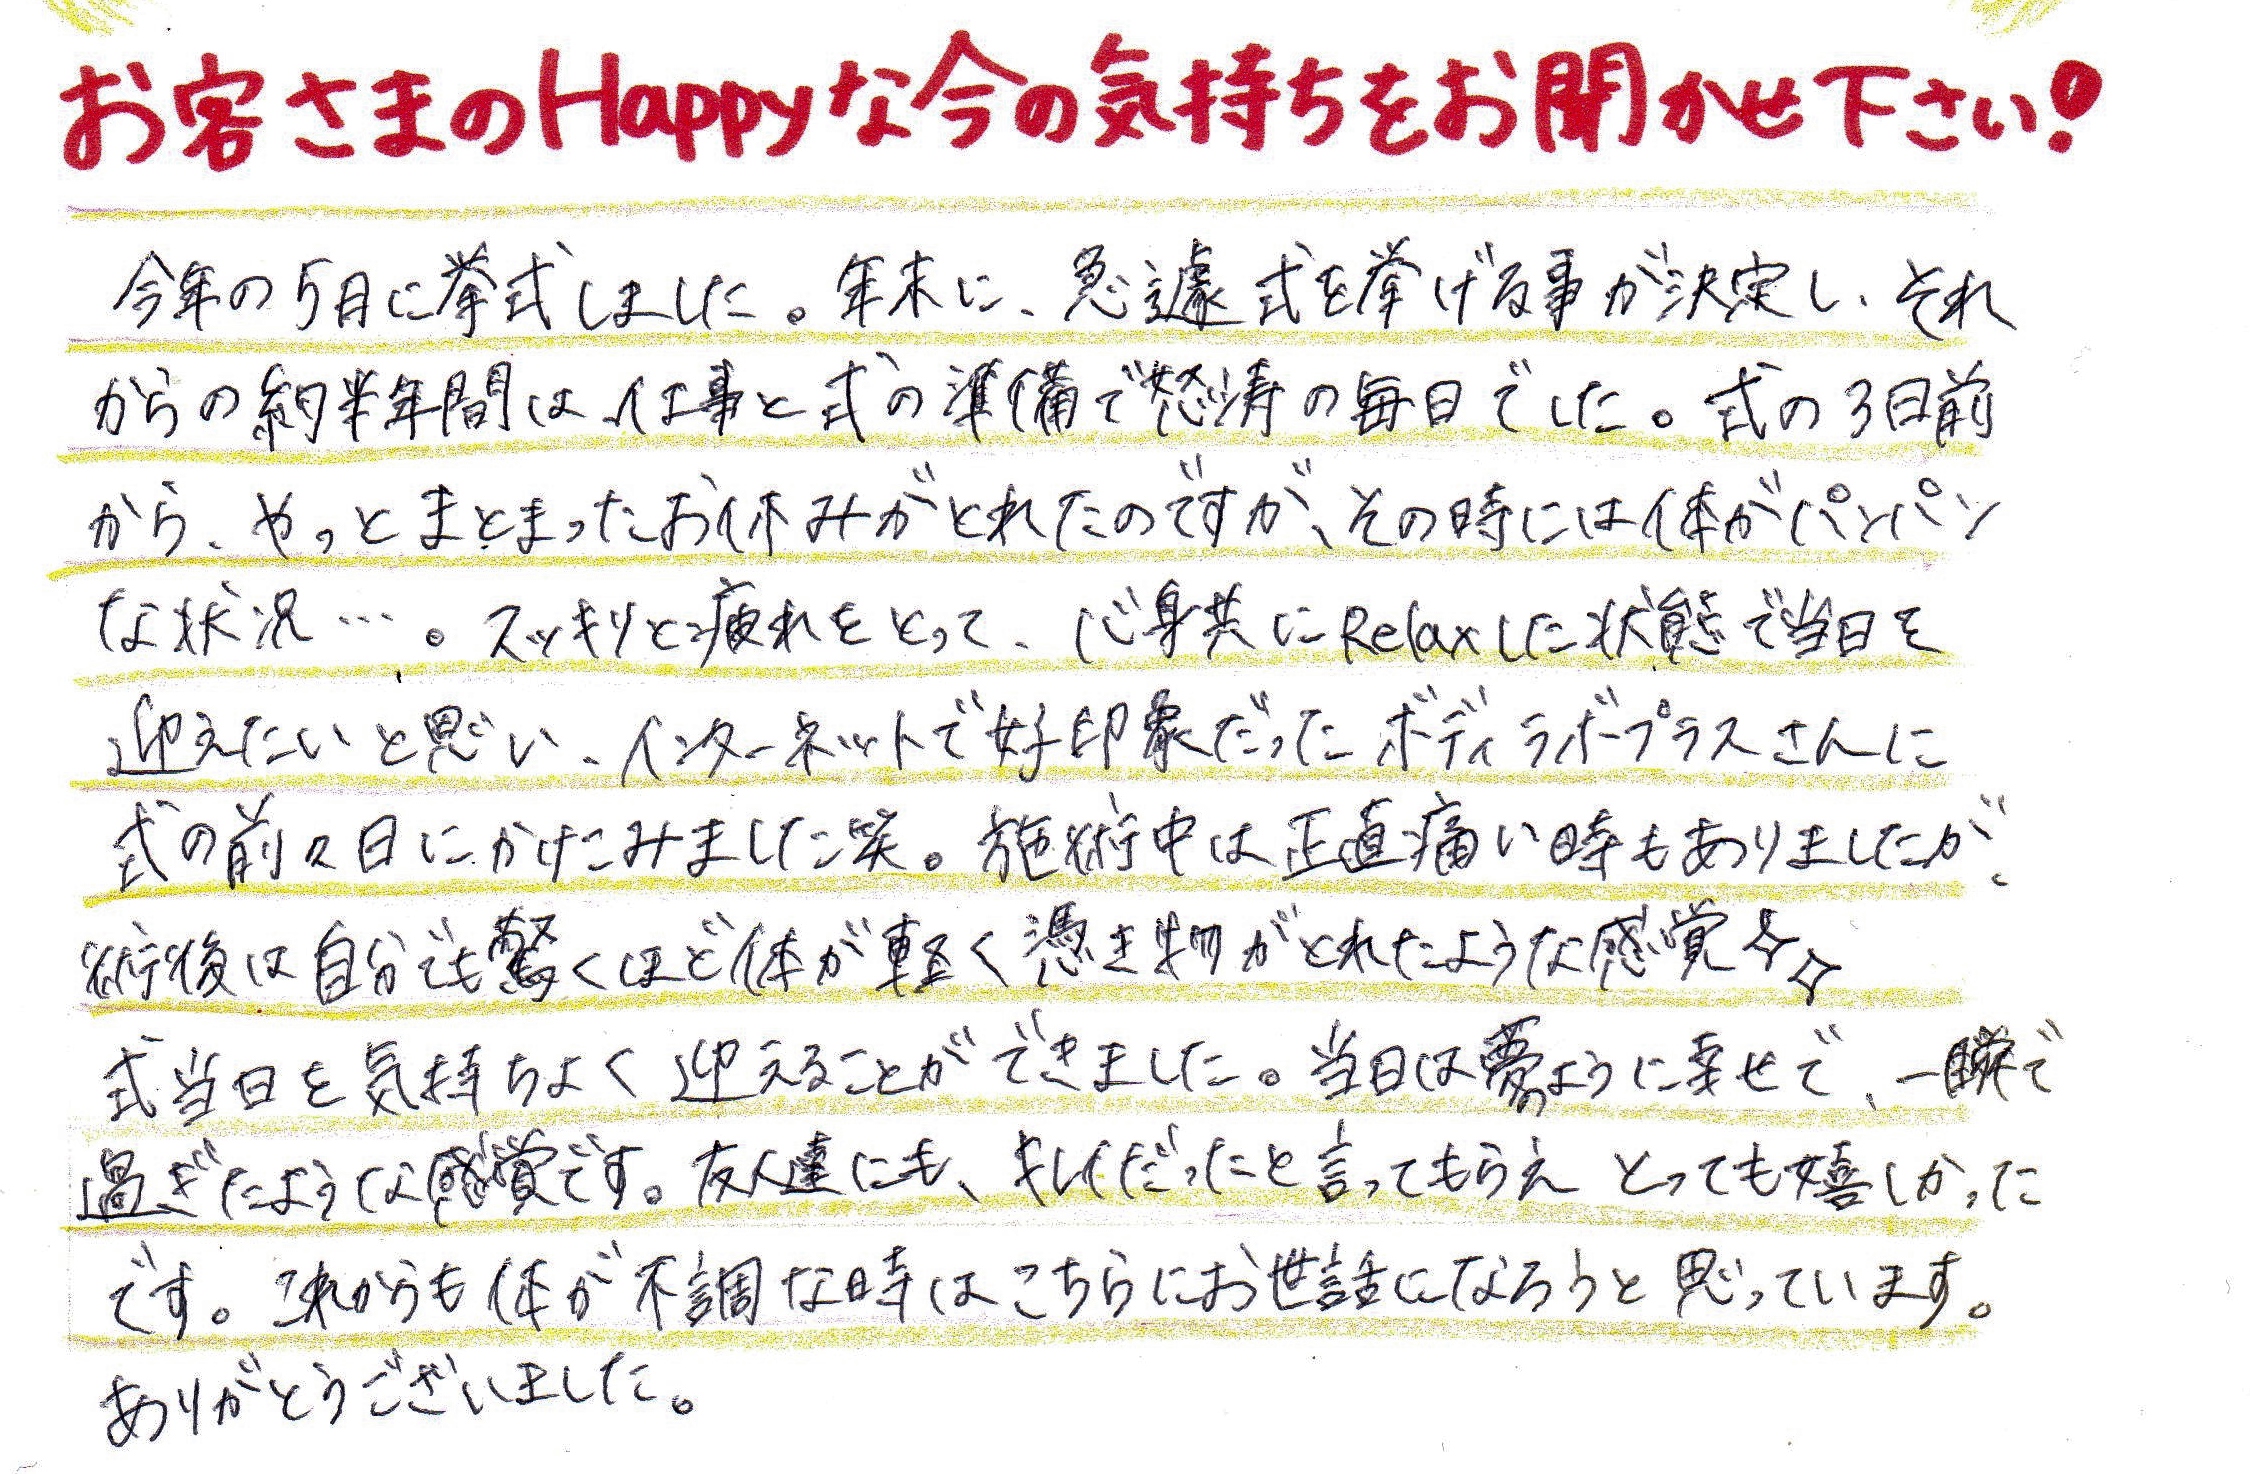 お客さまのHappyな今の気持ちをお聞かせ下さい!
今年の5月に挙式しました。年末に、急遽式を挙げる事が決定し、それ
からの約半年間は、仕事と式の準備で怒涛の毎日でした。式の3日前
から、やっとまとまったお休みがとれたのですが、その時には体がパンパン
な状況…。スッキリと疲れをとって、心身共にRelaxした状態で当日を
迎えたいと思い、インターネットで好印象だったボディラボープラスさんに
式の前々日にかけこみました笑。施術中は正直痛い時もありましたが、
術後は自分でも驚くほど体が軽く憑き物がとれたような感覚✧✧
式当日を気持ちよく迎えることができました。当日は夢のように幸せで、一瞬で
過ぎたような感覚です。友人達にも、キレイだったと言ってもらえ とっても嬉しかった
です。これからも体が不調な時はこちらにお世話になろうと思っています。
ありがとうございました。